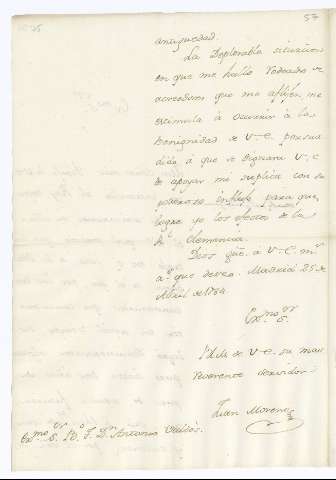 57
antiguedad.
La Deplorable situacion
en que me hallo rodeado de
acreedores que me aflijen, me
estimula à ocurrir à la
benignidad de V. E. persua
dido à que se dignará V. E.
de apoyar mi suplica con su
poderoso influjo para que
logre yo los efectos de la
Rl. clemencia.
Dios gue. à V. E. ms.
as. que deseo. Madrid 25 de
Abril de 1784.
Exmo. Sr.
S.
B.l.m. de V. E. su mas
Reverente servidor
Juan Moreno
Exmo. Sr. B.o F. Dn. Antonio Valdés.